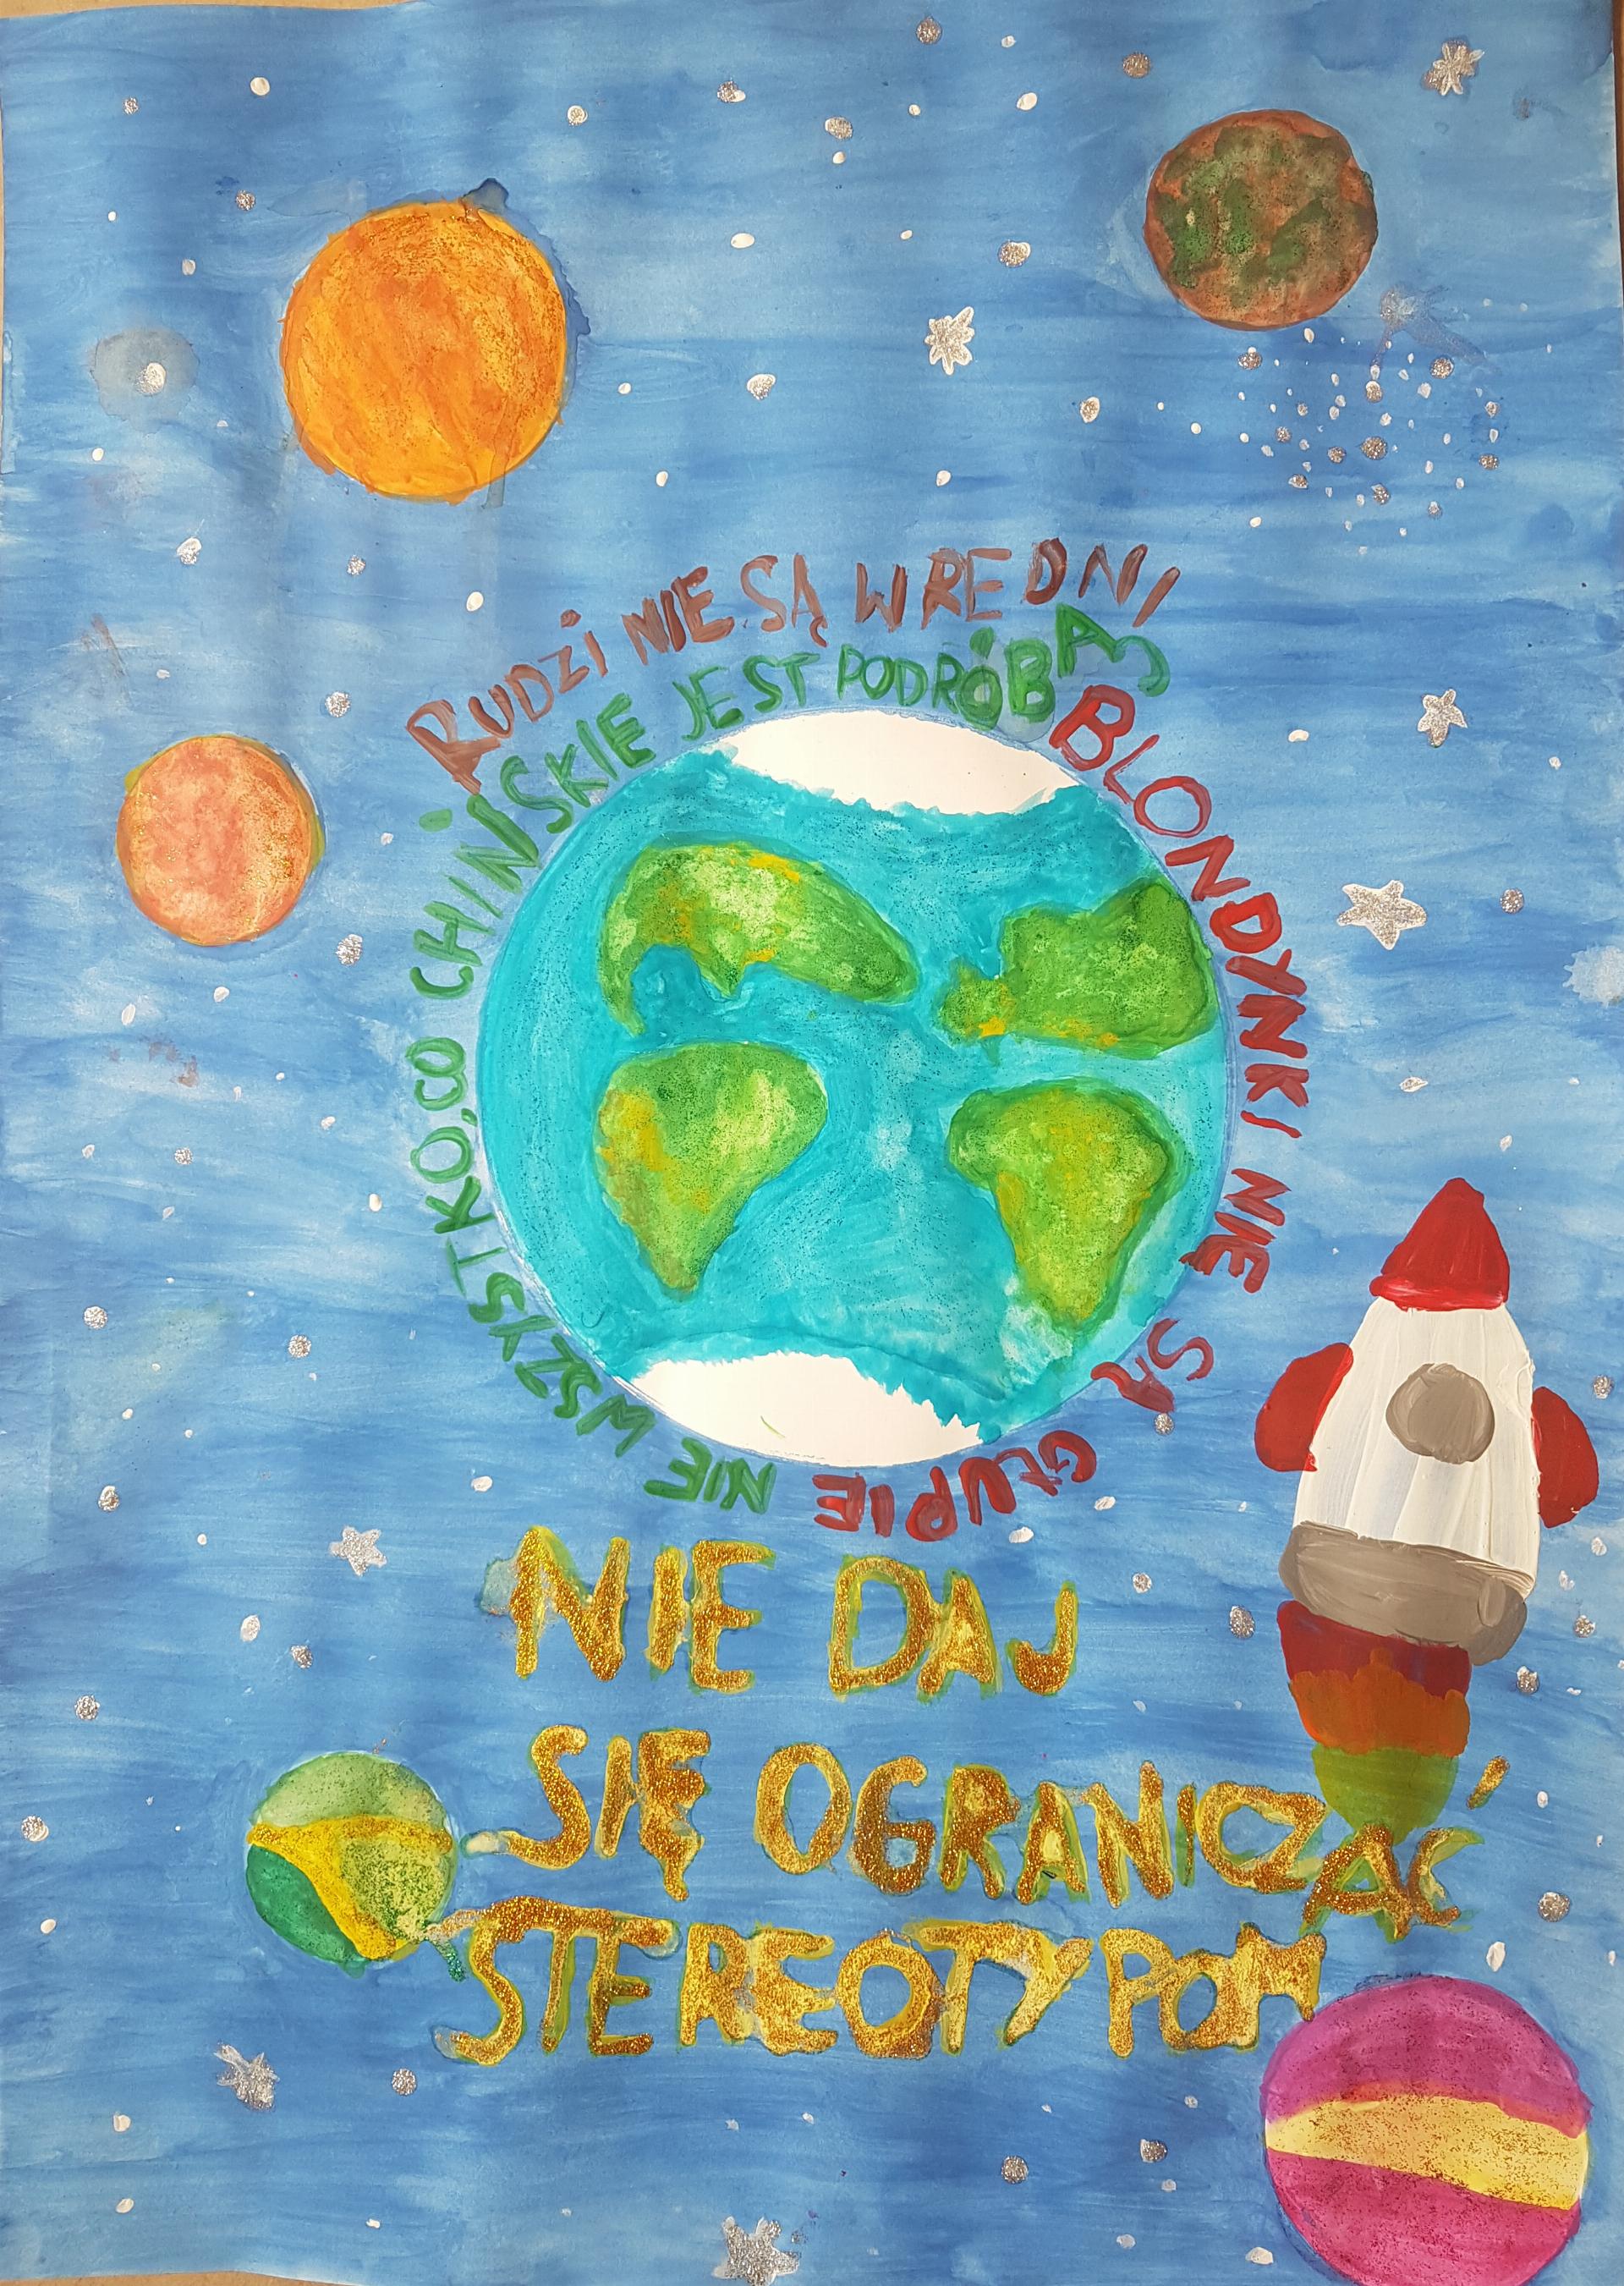 RUDZI NIE SĄ WREDNI
NIE WSZYSTKO, CO CHIŃSKIE JEST PODRÓBĄ
BLONDYNKI NIE SĄ GŁUPIE
NIE DAJ
SIĘ OGRANICZAĆ
STEREOTYPOM